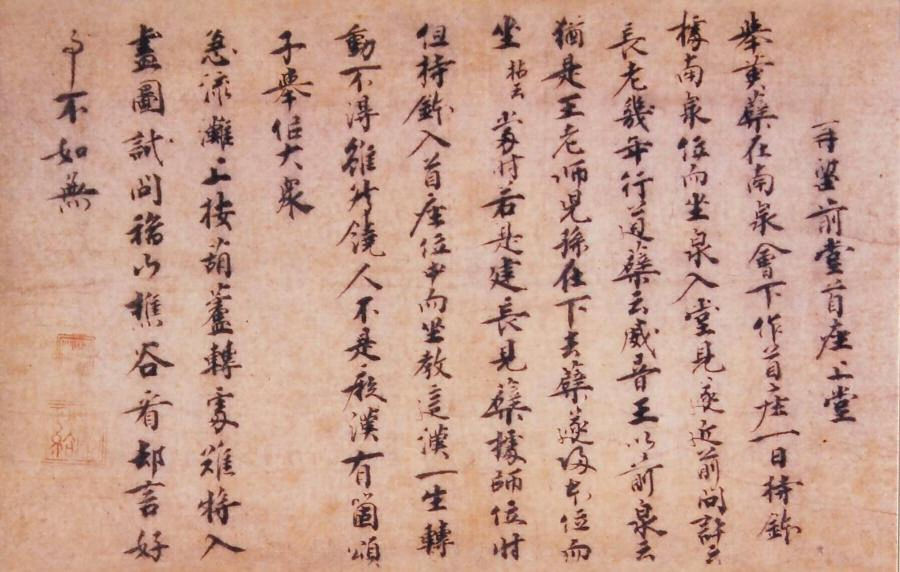 再望前堂首座上堂
舉黄蘗在南泉會下作首座一日持鉢
據南泉位而坐泉入堂見遂近前問訊云
長老幾年行道蘗云威音王以前泉云
猶是王老師児孫在下去蘗遂歸本位而
坐拈云當时若是建長見蘗據師位时
但持鉢入首座位中而坐教這漢一生轉
動不得雖然饒人不是癡漢有箇頌
子舉似大衆
急流灘上按葫蘆轉處難將入
畫圖試問山樵谷看却言好
事不如無